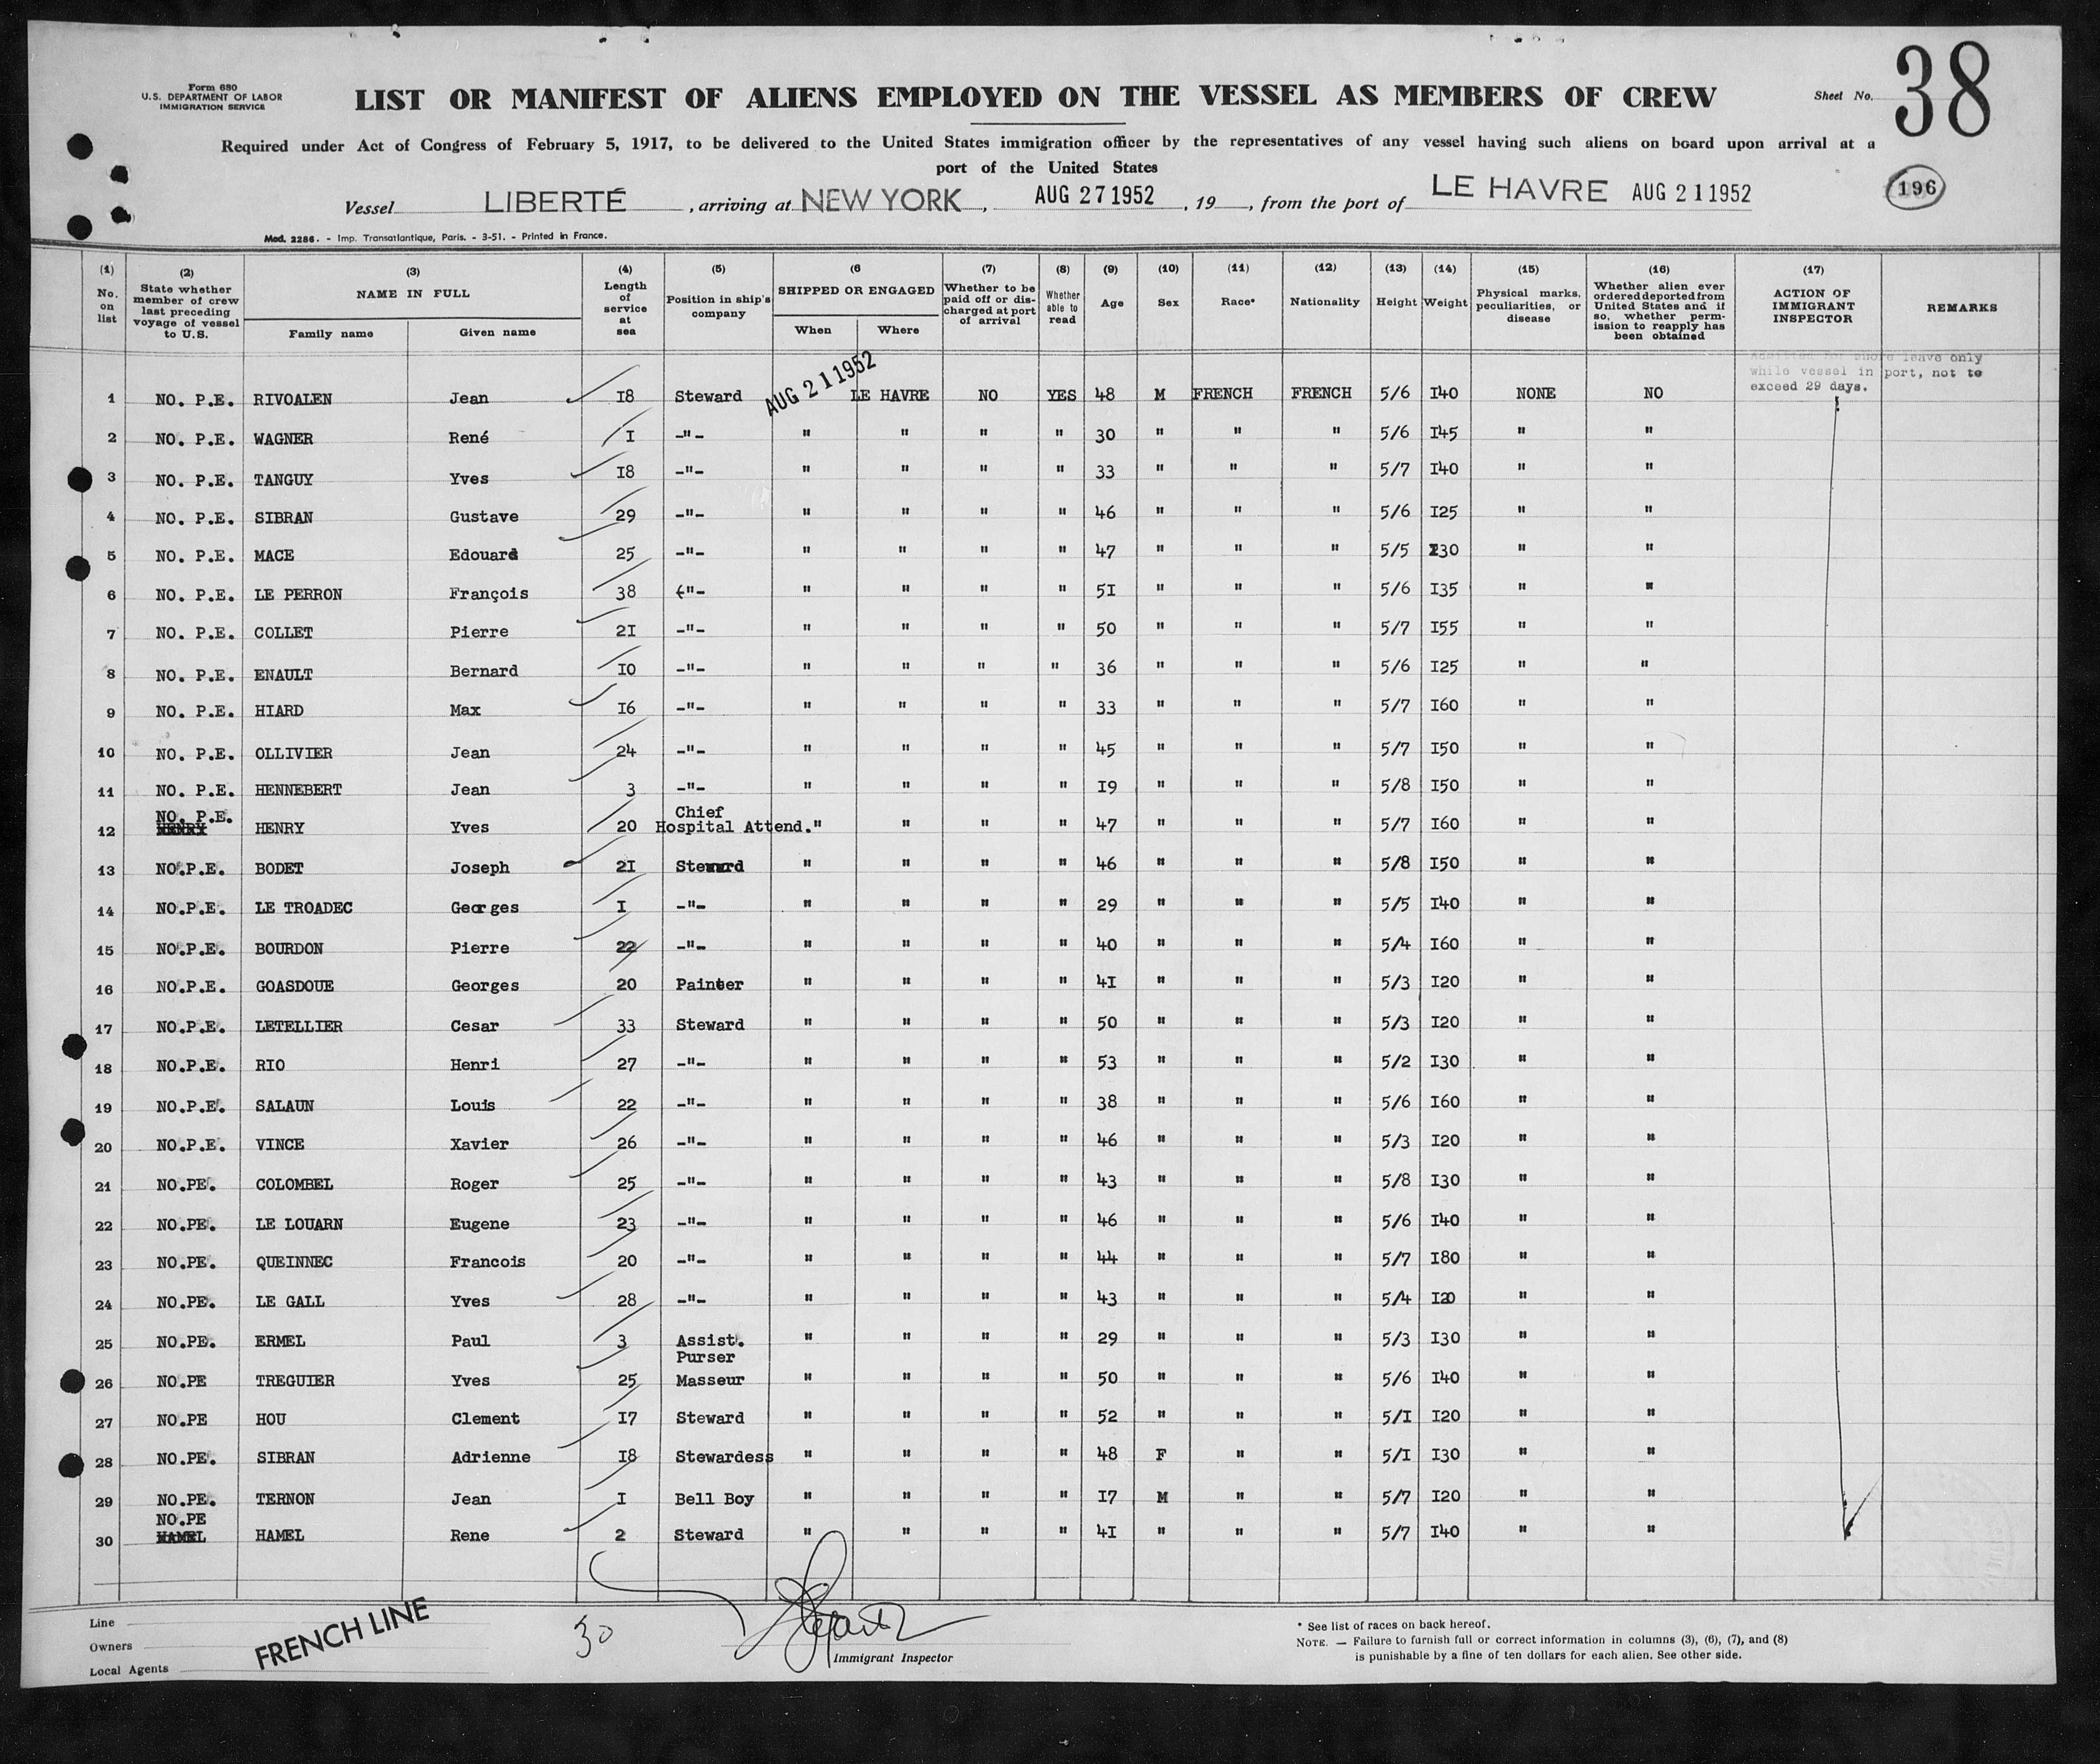 Form 680
U.S. DEPARTMENT OF LABOR
IMMIGRATION SERVICE
LIST OR MANIFEST OF ALIENS EMPLOYED ON THE VESSEL AS MEMBERS OF CREW
Sheet No. 38
Required under Act of Congress of February 5, 1917, to be delivered to the United States immigration officer by the representatives of any vessel having such aliens on board upon arrival at a
port of the United States
Vessel LIBERTÉ, arriving at NEW YORK, AUG 27 1952, 19 , from the port of LE HAVRE AUG 21 1952
196
Mod. 2286. - Imp. Transatlantique, Paris. - 3-51. - Printed in France.
(1) No. on list (2) State whether member of crew last preceding voyage of vessel to U.S. (3) NAME IN FULL Family name Given name (4) Length of service at sea (5) Position in ship's company (6 SHIPPED OR ENGAGED When Where (7) Whether to be paid off or discharged at port of arrival (8) Whether able to read (9) Age (10) Sex (11) Race* (12) Nationality (13) Height (14) Weight (15) Physical marks, peculiarities, or disease (16) Whether alien ever ordered deported from United States and if so, whether permission to reapply has been obtained (17) ACTION OF IMMIGRANT INSPECTOR REMARKS
Admitted for shore leave only
while vessel in port, not to
exceed 29 days.
1 NO. P.E. RIVOALEN Jean I8 Steward AUG 21 1952 LE HAVRE NO YES 48 M FRENCH FRENCH 5/6 I40 NONE NO
2 NO. P.E. WAGNER René I -"- " " " " 30 " " " 5/6 I45 " "
3 NO. P.E. TANGUY Yves I8 -"- " " " " 33 " " " 5/7 I40 " "
4 NO. P.E. SIBRAN Gustave 29 -"- " " " " 46 " " " 5/6 I25 " "
5 NO. P.E. MACE Edouard 25 -"- " " " " 47 " " " 5/5 I30 " "
6 NO. P.E. LE PERRON François 38 ("- " " " " 5I " " " 5/6 I35 " "
7 NO. P.E. COLLET Pierre 2I -"- " " " " 50 " " " 5/7 I55 " "
8 NO. P.E. ENAULT Bernard I0 -"- " " " " 36 " " " 5/6 I25 " "
9 NO. P.E. HIARD Max I6 -"- " " " " 33 " " " 5/7 I60 " "
10 NO. P.E. OLLIVIER Jean 24 -"- " " " " 45 " " " 5/7 I50 " "
11 NO. P.E. HENNEBERT Jean 3 -"- " " " " I9 " " " 5/8 I50 " "
12 NO. P.E. HENRY HENRY Yves 20 Chief Hospital Attend. " " " " 47 " " " 5/7 I60 " "
13 NO.P.E. BODET Joseph 2I Steward " " " " 46 " " " 5/8 I50 " "
14 NO.P.E. LE TROADEC Georges I -"- " " " " 29 " " " 5/5 I40 " "
15 NO.P.E. BOURDON Pierre 22 -"- " " " " 40 " " " 5/4 I60 " "
16 NO.P.E. GOASDOUE Georges 20 Painter " " " " 4I " " " 5/3 I20 " "
17 NO.P.E. LETELLIER Cesar 33 Steward " " " " 50 " " " 5/3 I20 " "
18 NO.P.E. RIO Henri 27 -"- " " " " 53 " " " 5/2 I30 " "
19 NO.P.E. SALAUN Louis 22 -"- " " " " 38 " " " 5/6 I60 " "
20 NO.P.E. VINCE Xavier 26 -"- " " " " 46 " " " 5/3 I20 " "
21 NO.PE. COLOMBEL Roger 25 -"- " " " " 43 " " " 5/8 I30 " "
22 NO.PE. LE LOUARN Eugene 23 -"- " " " " 46 " " " 5/6 I40 " "
23 NO.PE. QUEINNEC Francois 20 -"- " " " " 44 " " " 5/7 I80 " "
24 NO.PE. LE GALL Yves 28 -"- " " " " 43 " " " 5/4 I20 " "
25 NO.PE. ERMEL Paul 3 Assist. Purser " " " " 29 " " " 5/3 I30 " "
26 NO.PE TREGUIER Yves 25 Masseur " " " " 50 " " " 5/6 I40 " "
27 NO.PE HOU Clement I7 Steward " " " " 52 " " " 5/I I20 " "
28 NO.PE. SIBRAN Adrienne I8 Stewardess " " " " 48 F " " 5/I I30 " "
29 NO.PE. TERNON Jean I Bell Boy " " " " I7 M " " 5/7 I20 " "
30 NO.PE HAMEL HAMEL Rene 2 Steward " " " " 4I " " " 5/7 I40 " "
Line
Owners
Local Agents
FRENCH LINE
30
Immigrant Inspector
* See list of races on back hereof.
NOTE. — Failure to furnish full or correct information in columns (3), (6), (7), and (8)
is punishable by a fine of ten dollars for each alien. See other side.